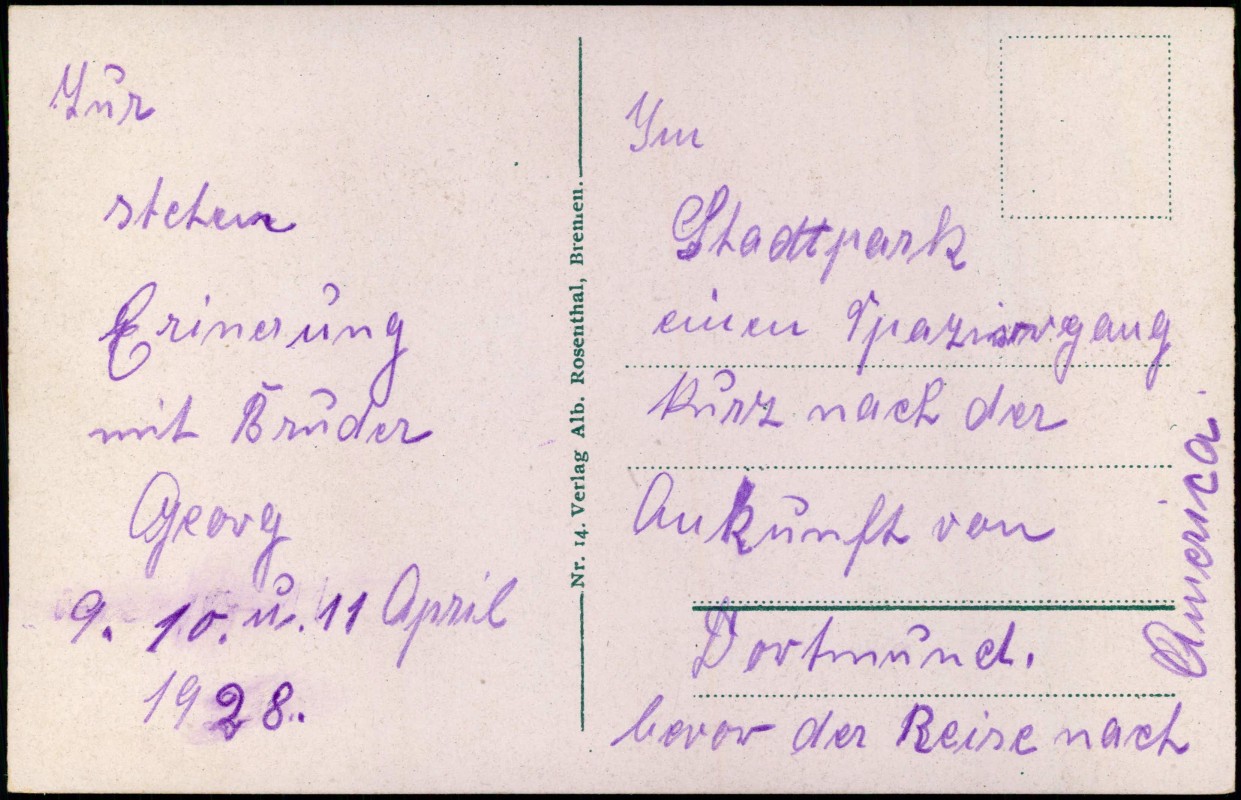 Zur
steten
Erinerung
mit Bruder
Georg
9. 10. u. 11 April
1928.
Nr. 14. Verlag Alb. Rosenthal, Bremen.
Im
Stadtpark
einen Spaziergang
kurz nach der
Ankunft von
Dortmund.
bevor der Reise nach
America.